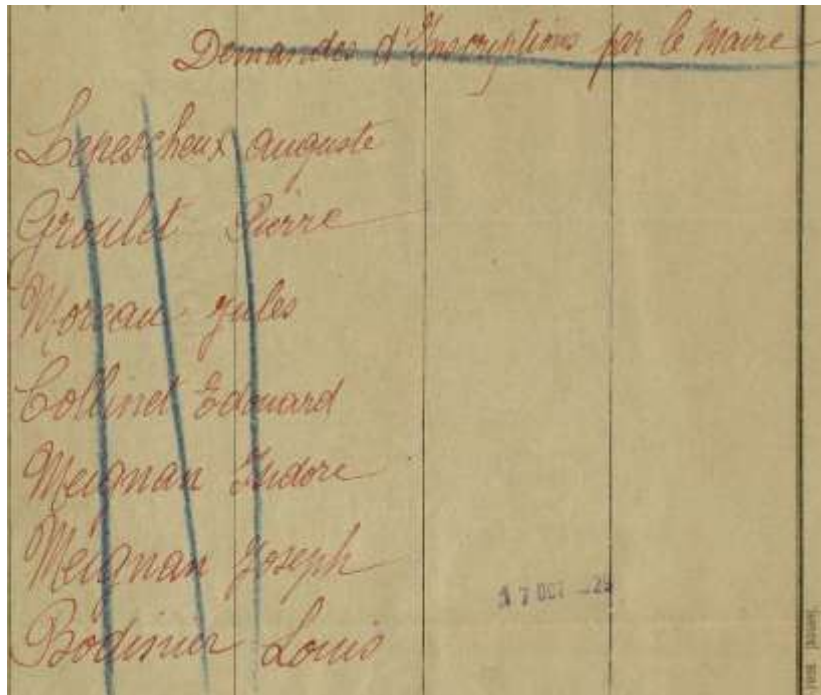 Demandes d'Inscriptions par le Maire
Lepescheux Auguste
Groulet Pierre
Moreau Jules
Collinet Edouard
Meignan Isidore
Meignan Joseph
Bodinier Louis
17 OCT